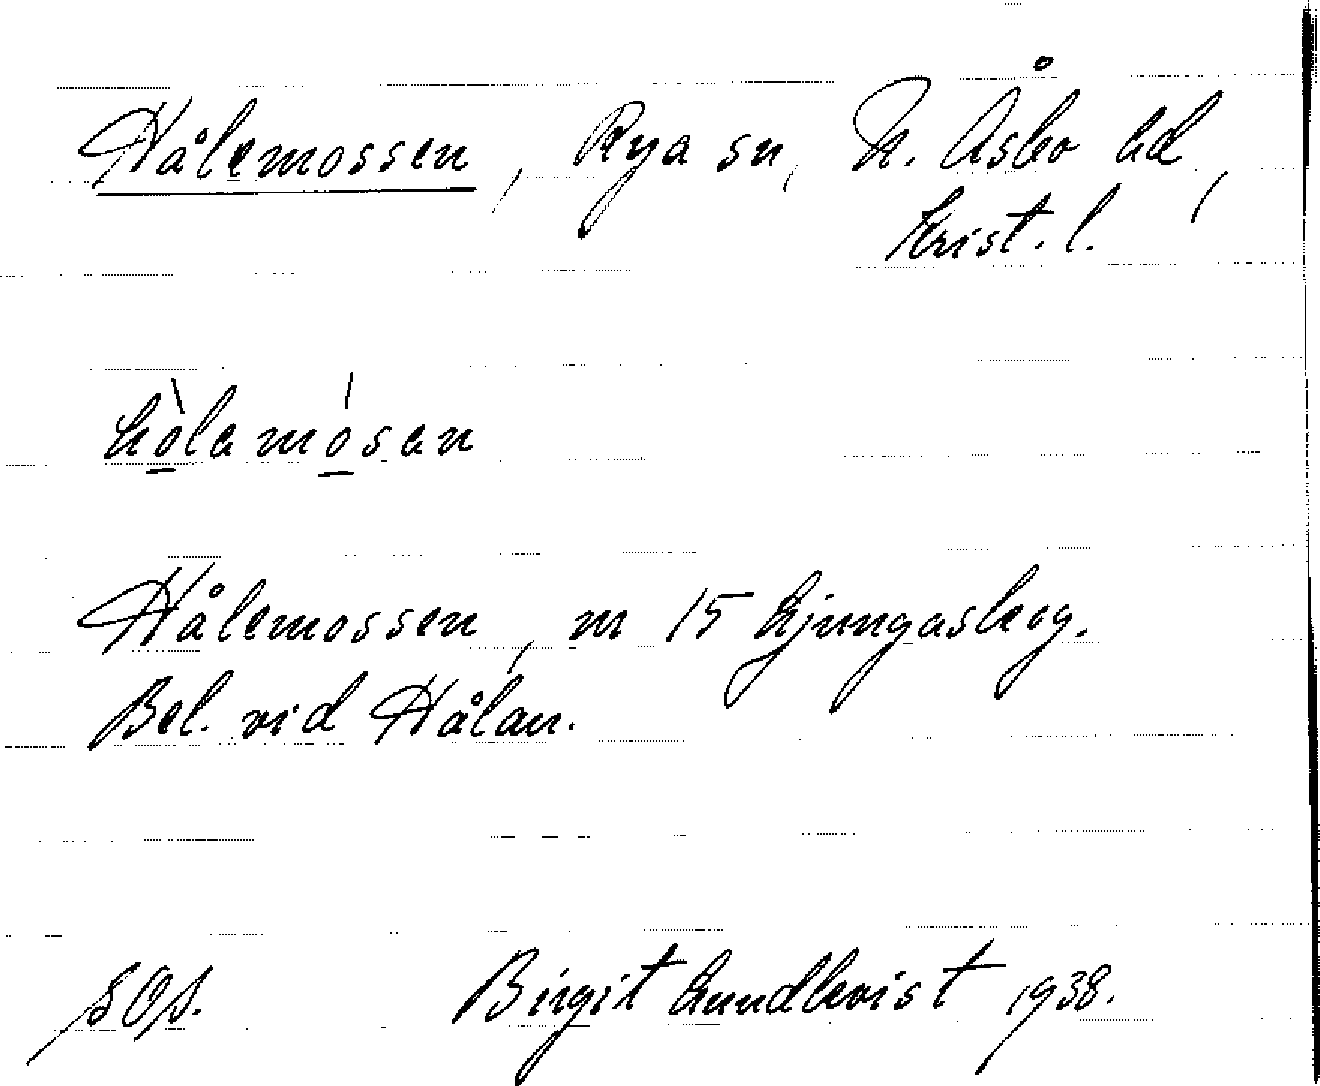 Hålemossen, Rya sn, N. Åsbo hd,
Krist. l.
hò̲lamó̲san
Hålemossen, m 15 Ljungaskog.
Bel. vid Hålan.
Birgit Lundkvist 1938.